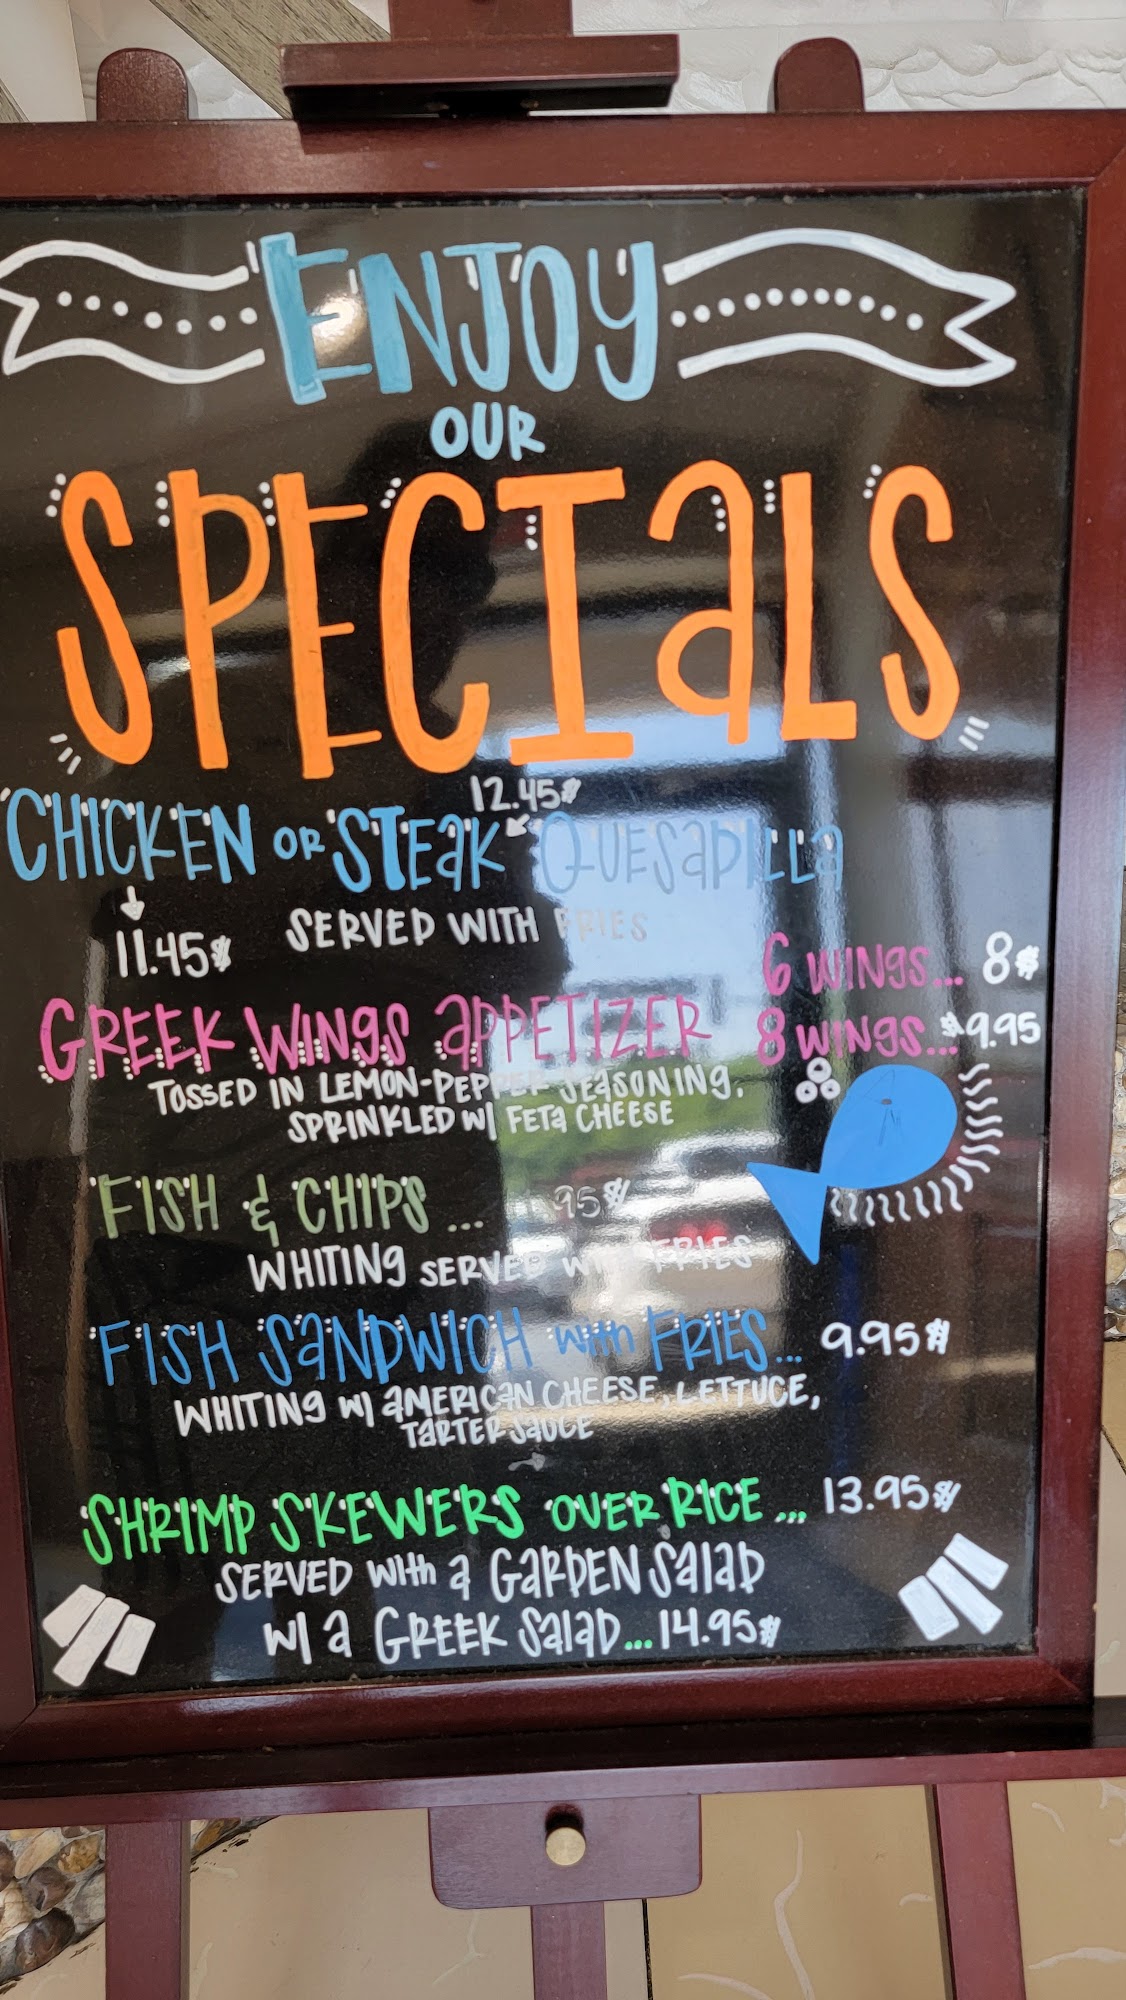 ENJOY
OUR
SPECIALS
12.45$
CHICKEN OR STEAK QUESADILLA
11.45$ SERVED WITH FRIES
6 WINGS... 8$
GREEK WINGS APPETIZER 8 WINGS...$9.95
TOSSED IN LEMON-PEPPER SEASONING,
SPRINKLED W/ FETA CHEESE
FISH & CHIPS ...
WHITING SERVED WITH FRIES
FISH SANDWICH with FRIES... 9.95$
WHITING W/ AMERICAN CHEESE, LETTUCE,
TARTER SAUCE
SHRIMP SKEWERS OVER RICE... 13.95$
SERVED WITH A GARDEN SALAD
W/ A GREEK SALAD...14.95$